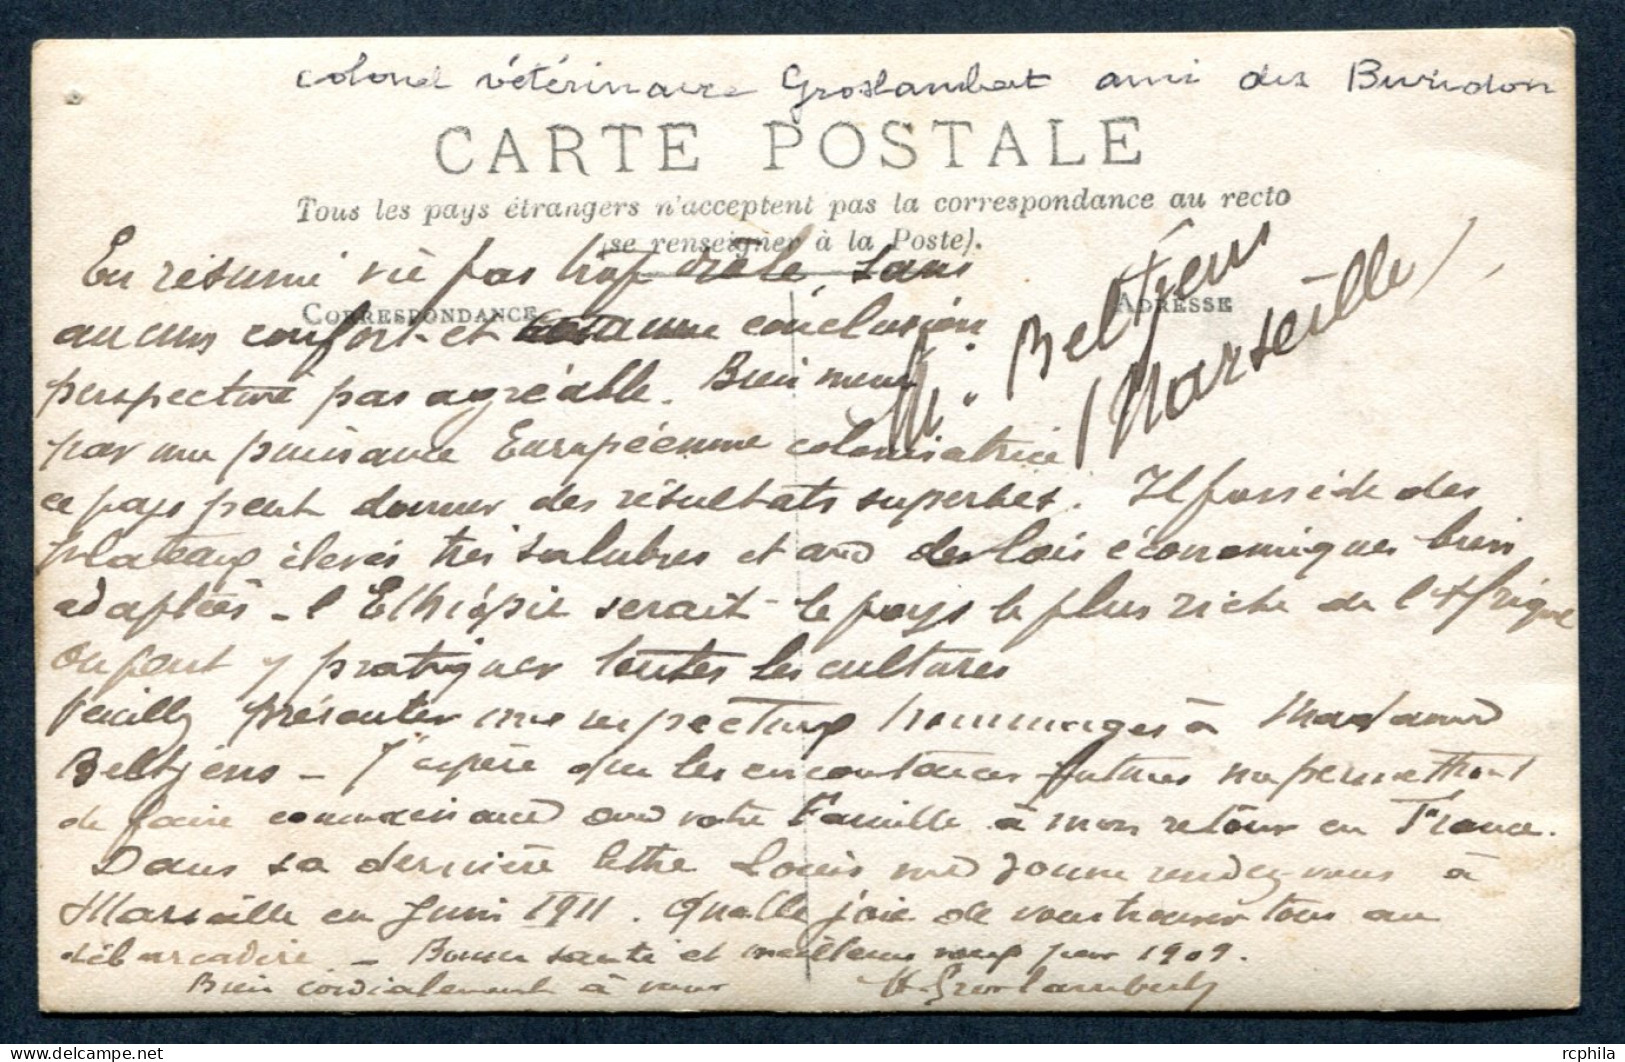 colonel vétérinaire Groslambert ami des Buridon
CARTE POSTALE
Tous les pays étrangers n'acceptent pas la correspondance au recto
(se renseigner à la Poste).
CORRESPONDANCE
ADRESSE
Mr Beltjens
(Marseille)
En résumé vie pas trop drôle, sans
aucuns confort et comme conclusion
perspective pas agréable. Bien menée
par une puissance Européenne colonisatrice
ce pays peut donner des résultats superbes. Il possède des
plateaux élevés très salubres et avec des lois économiques bien
adaptées - l'Ethiopie serait le pays le plus riche de l'Afrique
On peut y pratiquer toutes les cultures
Veuillez présenter mes respectueux hommages à Madame
Beltjens - J'espère que les circonstances futures me permettront
de faire connaissance avec votre famille à mon retour en France.
Dans sa dernière lettre Louis me donne rendez-vous à
Marseille en Juin 1911. Quelle joie de vous trouver tous au
débarcadère - Bonne santé et meilleurs vœux pour 1909.
Bien cordialement à vous
H Groslambert
rcphila